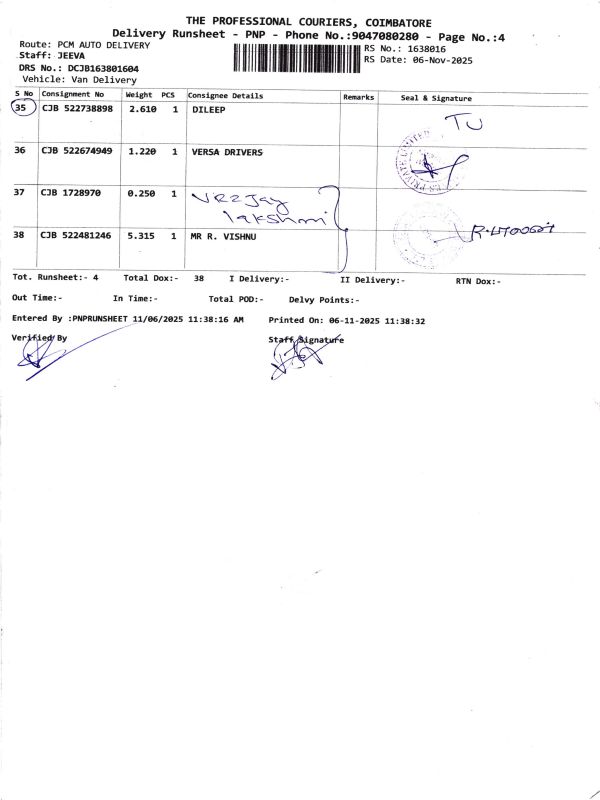 THE PROFESSIONAL COURIERS, COIMBATORE
Delivery Runsheet - PNP - Phone No.:9047080280 - Page No.:4
Route: PCM AUTO DELIVERY
RS No.: 1638016
Staff: JEEVA
RS Date: 06-Nov-2025
DRS No.: DCJB163801604
Vehicle: Van Delivery
S No Consignment No Weight PCS Consignee Details Remarks Seal & Signature
35 CJB 522738898 2.610 1 DILEEP TU
36 CJB 522674949 1.220 1 VERSA DRIVERS
37 CJB 1728970 0.250 1
lakshmi
38 CJB 522481246 5.315 1 MR R. VISHNU
Tot. Runsheet:- 4 Total Dox:- 38 I Delivery:- II Delivery:- RTN Dox:-
Out Time:- In Time:- Total POD:- Delvy Points:-
Entered By :PNPRUNSHEET 11/06/2025 11:38:16 AM Printed On: 06-11-2025 11:38:32
Verified By Staff Signature